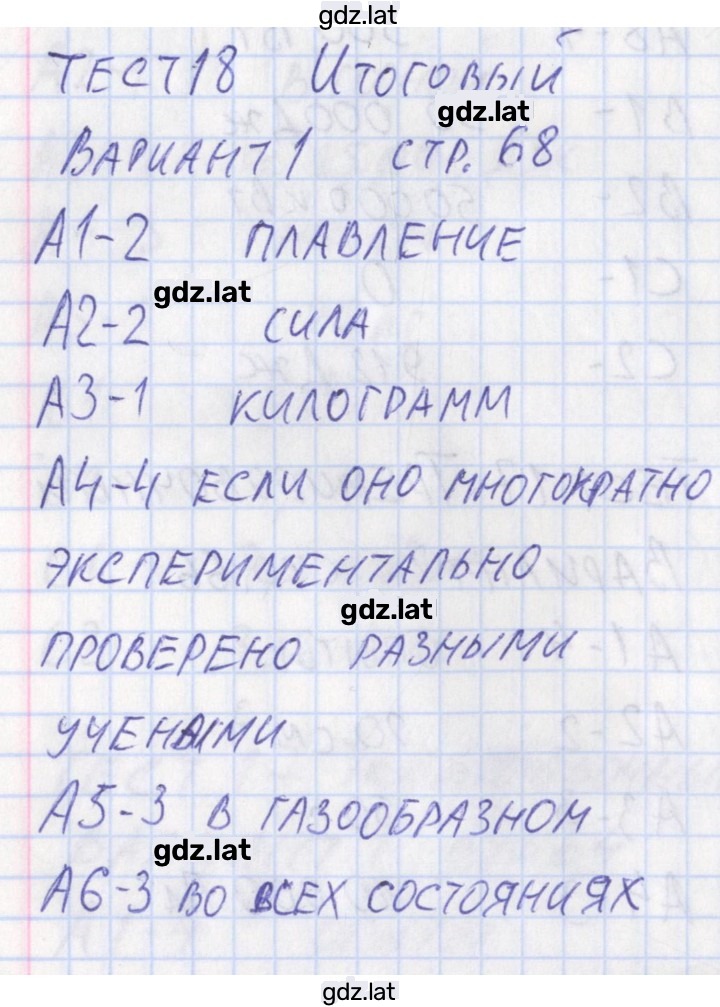 gdz.lat
ТЕСТ 18 Итоговый
gdz.lat
ВАРИАНТ 1 СТР. 68
А1-2 ПЛАВЛЕНИЕ
gdz.lat
А2-2 СИЛА
А3-1 КИЛОГРАММ
А4-4 ЕСЛИ ОНО МНОГОКРАТНО
ЭКСПЕРИМЕНТАЛЬНО
gdz.lat
ПРОВЕРЕНО РАЗНЫМИ
УЧЕНЫМИ
А5-3 В ГАЗООБРАЗНОМ
gdz.lat
А6-3 ВО ВСЕХ СОСТОЯНИЯХ
gdz.lat